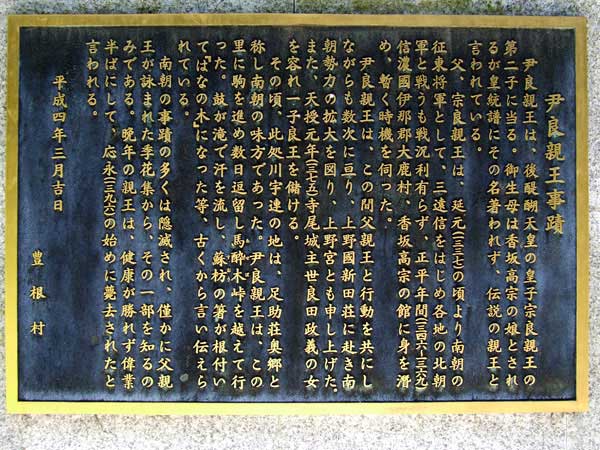 尹良親王事蹟
尹良親王は、後醍醐天皇の皇子宗良親王の
第二子に当る。御生母は香坂高宗の娘とされ
るが皇統譜にその名著われず、伝説の親王と
言われている。
父、宗良親王は、延元(三三七)の頃より南朝の
征東将軍として、三遠信をはじめ各地の北朝
軍と戦うも戦況利有らず、正平年間(三四六〜三六九)
信濃國伊那郡大鹿村、香坂高宗の館に身を潛
め、暫く時機を伺った。
尹良親王は、この間父親王と行動を共にし
ながらも数次に亘り、上野國新田荘に赴き南
朝勢力の拡大を図り、上野宮とも申し上げた。
また、天授元年(三七五)寺尾城主世良田政義の女
を容れ一子良王を儲ける。
その頃、此処川宇連の地は、足助荘奥郷と
称し南朝の味方であった。尹良親王は、この
里に駒を進め数日逗留し馬酔木峠を越えて行
った。鼓が滝で汗を流し、蘇枋の箸が根付い
てばなの木になった等、古くから言い伝えら
れている。
南朝の事蹟の多くは隠滅され、僅かに父親
王が詠まれた季花集から、その一部を知るの
みである。晩年の親王は、健康が勝れず偉業
半ばにして、応永(三九六)の始めに薨去されたと
言われる。
平成四年三月吉日
豊根村